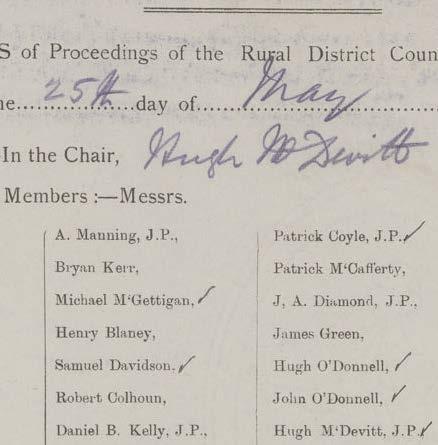 S of Proceedings of the Rural District Coun
ne..........25th......day of......May..........
In the Chair, Hugh McDevitt
Members :—Messrs.
A. Manning, J.P.,
Bryan Kerr,
Michael M‘Gettigan, ✓
Henry Blaney,
Samuel Davidson, ✓
Robert Colhoun,
Daniel B. Kelly, J.P.,
Patrick Coyle, J.P. ✓
Patrick M‘Cafferty,
J, A. Diamond, J.P.,
James Green,
Hugh O'Donnell, ✓
John O'Donnell, ✓
Hugh M‘Devitt, J.P. ✓